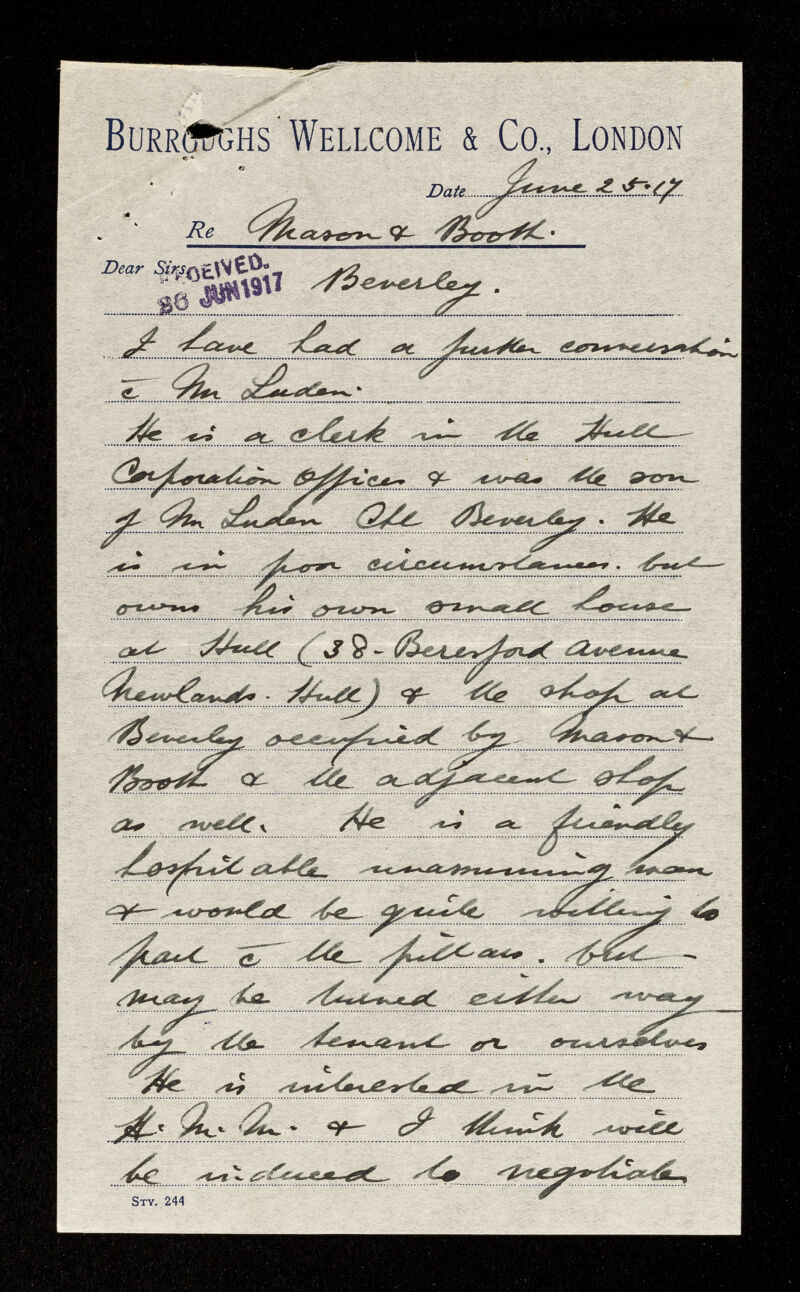 BURROUGHS WELLCOME & CO., LONDON
Date June 25.17
Re Mason & Booth.
Dear Sirs
RECEIVED.
26 JUN 1917
Beverley.
I have had a further conversation
c̄ Mr Luden.
He is a clerk in the Hull
Corporation Offices & was the son
of Mr Luden Beverley. He
is in poor circumstances. but
owns his own small house
at Hull (38 - Beresford Avenue
Newlands. Hull) & the shop at
Beverley occupied by Mason &
Booth & the adjacent shop
as well. He is a friendly
hospitable unassuming man
& would be quite willing to
part c̄ the pillars. but -
may be turned either way
by the tenant or ourselves
He is interested in the
H.M.M. & I think will
be induced to negotiate
STY. 244